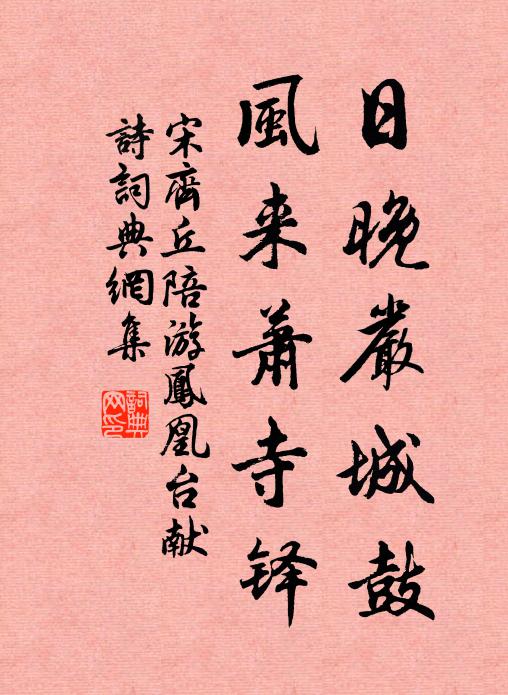 日晚嚴城鼓
風来蕭寺铎
宋齊丘陪游鳳凰台献
詩詞典網集
詞典网印